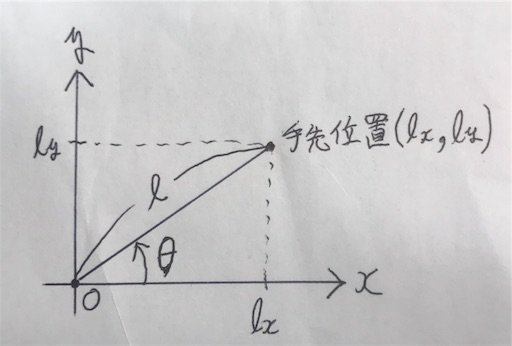 y
ly
手先位置(lx, ly)
l
θ
O
lx
x